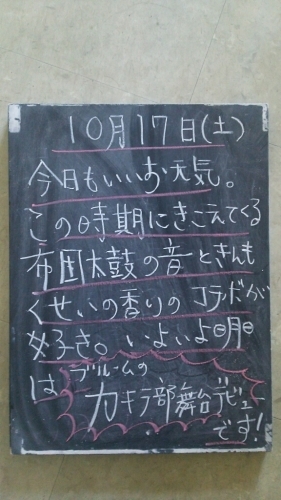 10月17日(土)
今日もいいお天気。
この時期にきこえてくる
布団太鼓の音ときんも
くせいの香りのコラボが
好き。いよいよ明日
は ブルームの
カキラ部舞台デビュー
です!